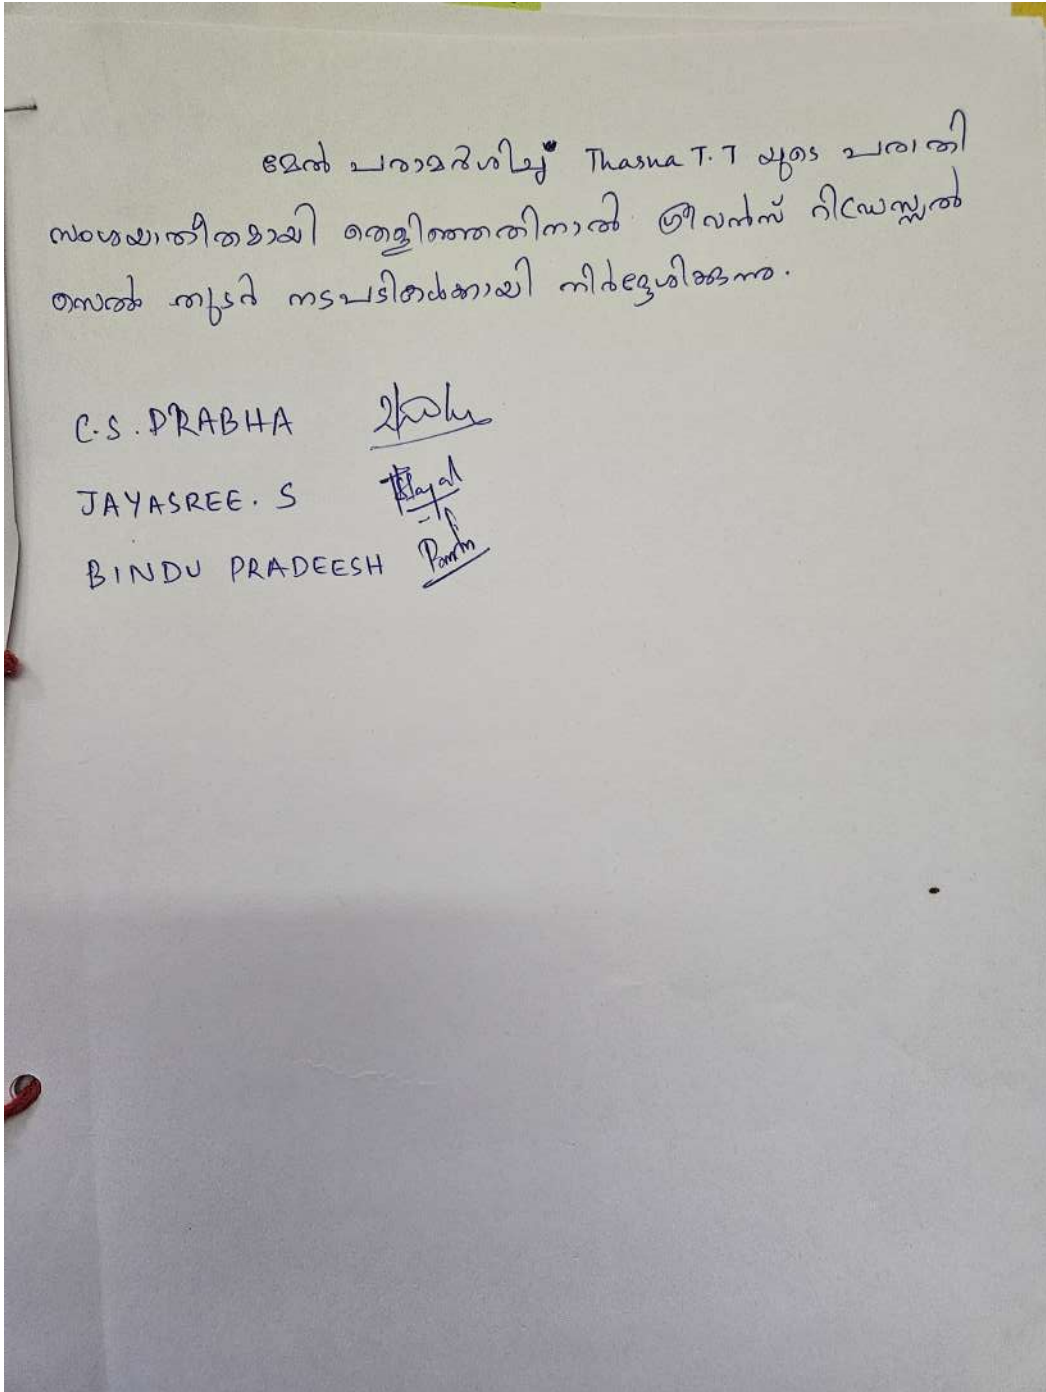 മേൽ പരാമർശിച്ച് Thasna T.T യുടെ പരാതി
സംശയാതീതമായി തെളിഞ്ഞതിനാൽ ഗ്രീവൻസ് റിഡ്രസ്സൽ
സെൽ തുടർ നടപടികൾക്കായി നിർദ്ദേശിക്കുന്നു.
C.S. PRABHA
JAYASREE. S
BINDU PRADEESH